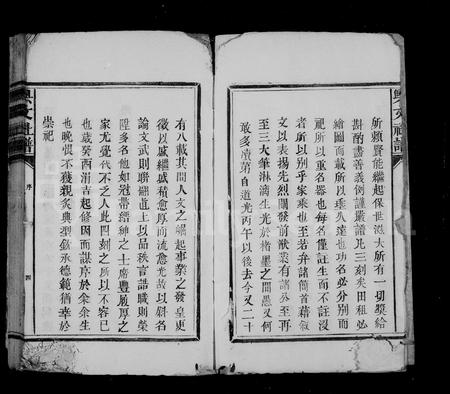 所賴賢能繼起保世滋大所有一切獎給
斟酌盡善義例謹嚴譜凡三刻矣田租必
繪圖而載所以垂久遠也功名必分別而
祀所以重名器也每名僅註生而不註沒
者所以別乎家乘也至若弁諸簡首藉敘
文以表揚先烈闡發前猷業有諸公至再
至三大筆淋漓生光於楮墨之間愚又何
敢多瀆第自道光丙午以後去今又二十
有八載其間人文之崛起事業之發皇更
徵以戚繼戚稍愈厚而流愈光故以爵名
論文武則聯翩直上以品秩言誥職則榮
陞多名他如冠帶縉紳之士席豐履厚之
家尤覺代不乏人此四刻之所以不容已
也歲癸酉涓吉起修因而謀序於余余生
也晚恨不獲親炙典型級承德範猶幸於
崇祀
序
四